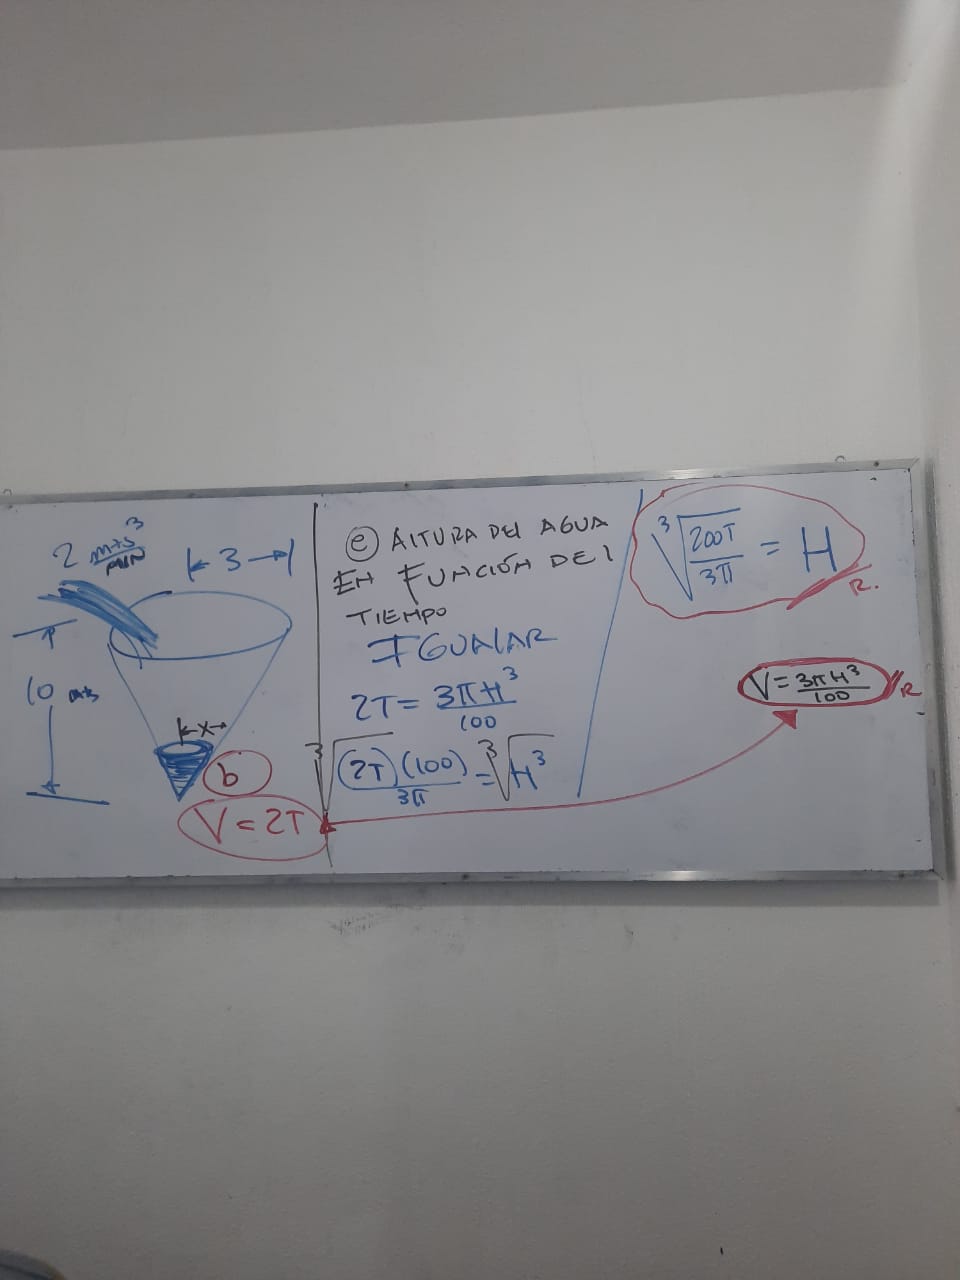 2 mts³/MIN
|← 3 →|
10 mts
|← x →
b
V = 2T
e ALTURA DEL AGUA
EN FUNCIÓN DEL
TIEMPO
IGUALAR
2T = 3πH³/100
∛((2T)(100)/3π) = ∛H³
∛(200T/3π) = H
R.
V = 3πH³/100
R